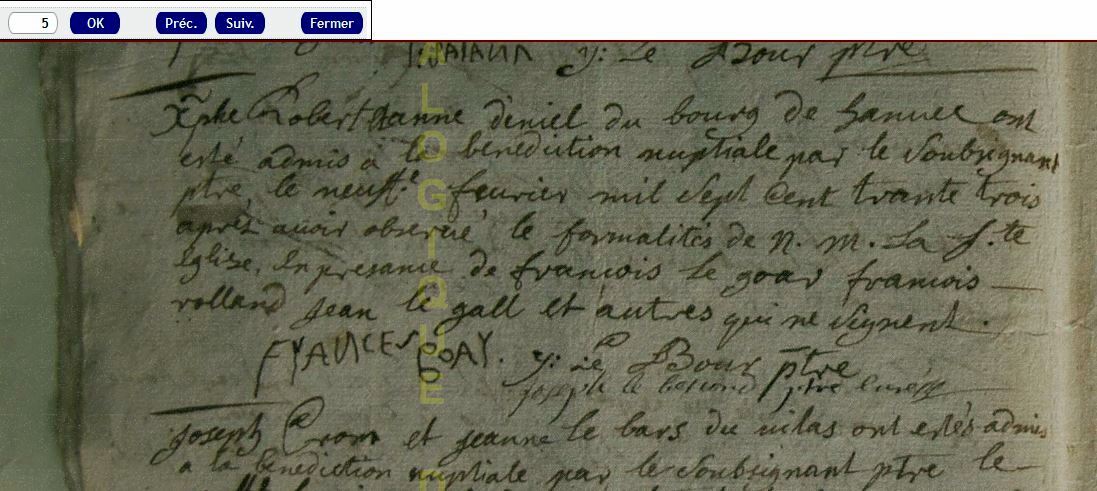 5 OK Préc. Suiv. Fermer
y: Le Bour ptre
Xphe Robert Janne deniel du bourg de hanuec ont
esté admis a la benediction nuptiale par le Soubsignant
ptre, le neuff.e feurier mil Sept Cent trante trois
apres auoir obserué le formalités de N. M. La S.te
Eglise, En presance de francois le goar francois
rolland jean le gall et autres qui ne Signent.
FRANCES GOAR. y: Le Bour ptre
joseph le ptre
joseph Crom et jeanne le bars du uilas ont estés admis
a la benediction nuptiale par le Soubsignant ptre le